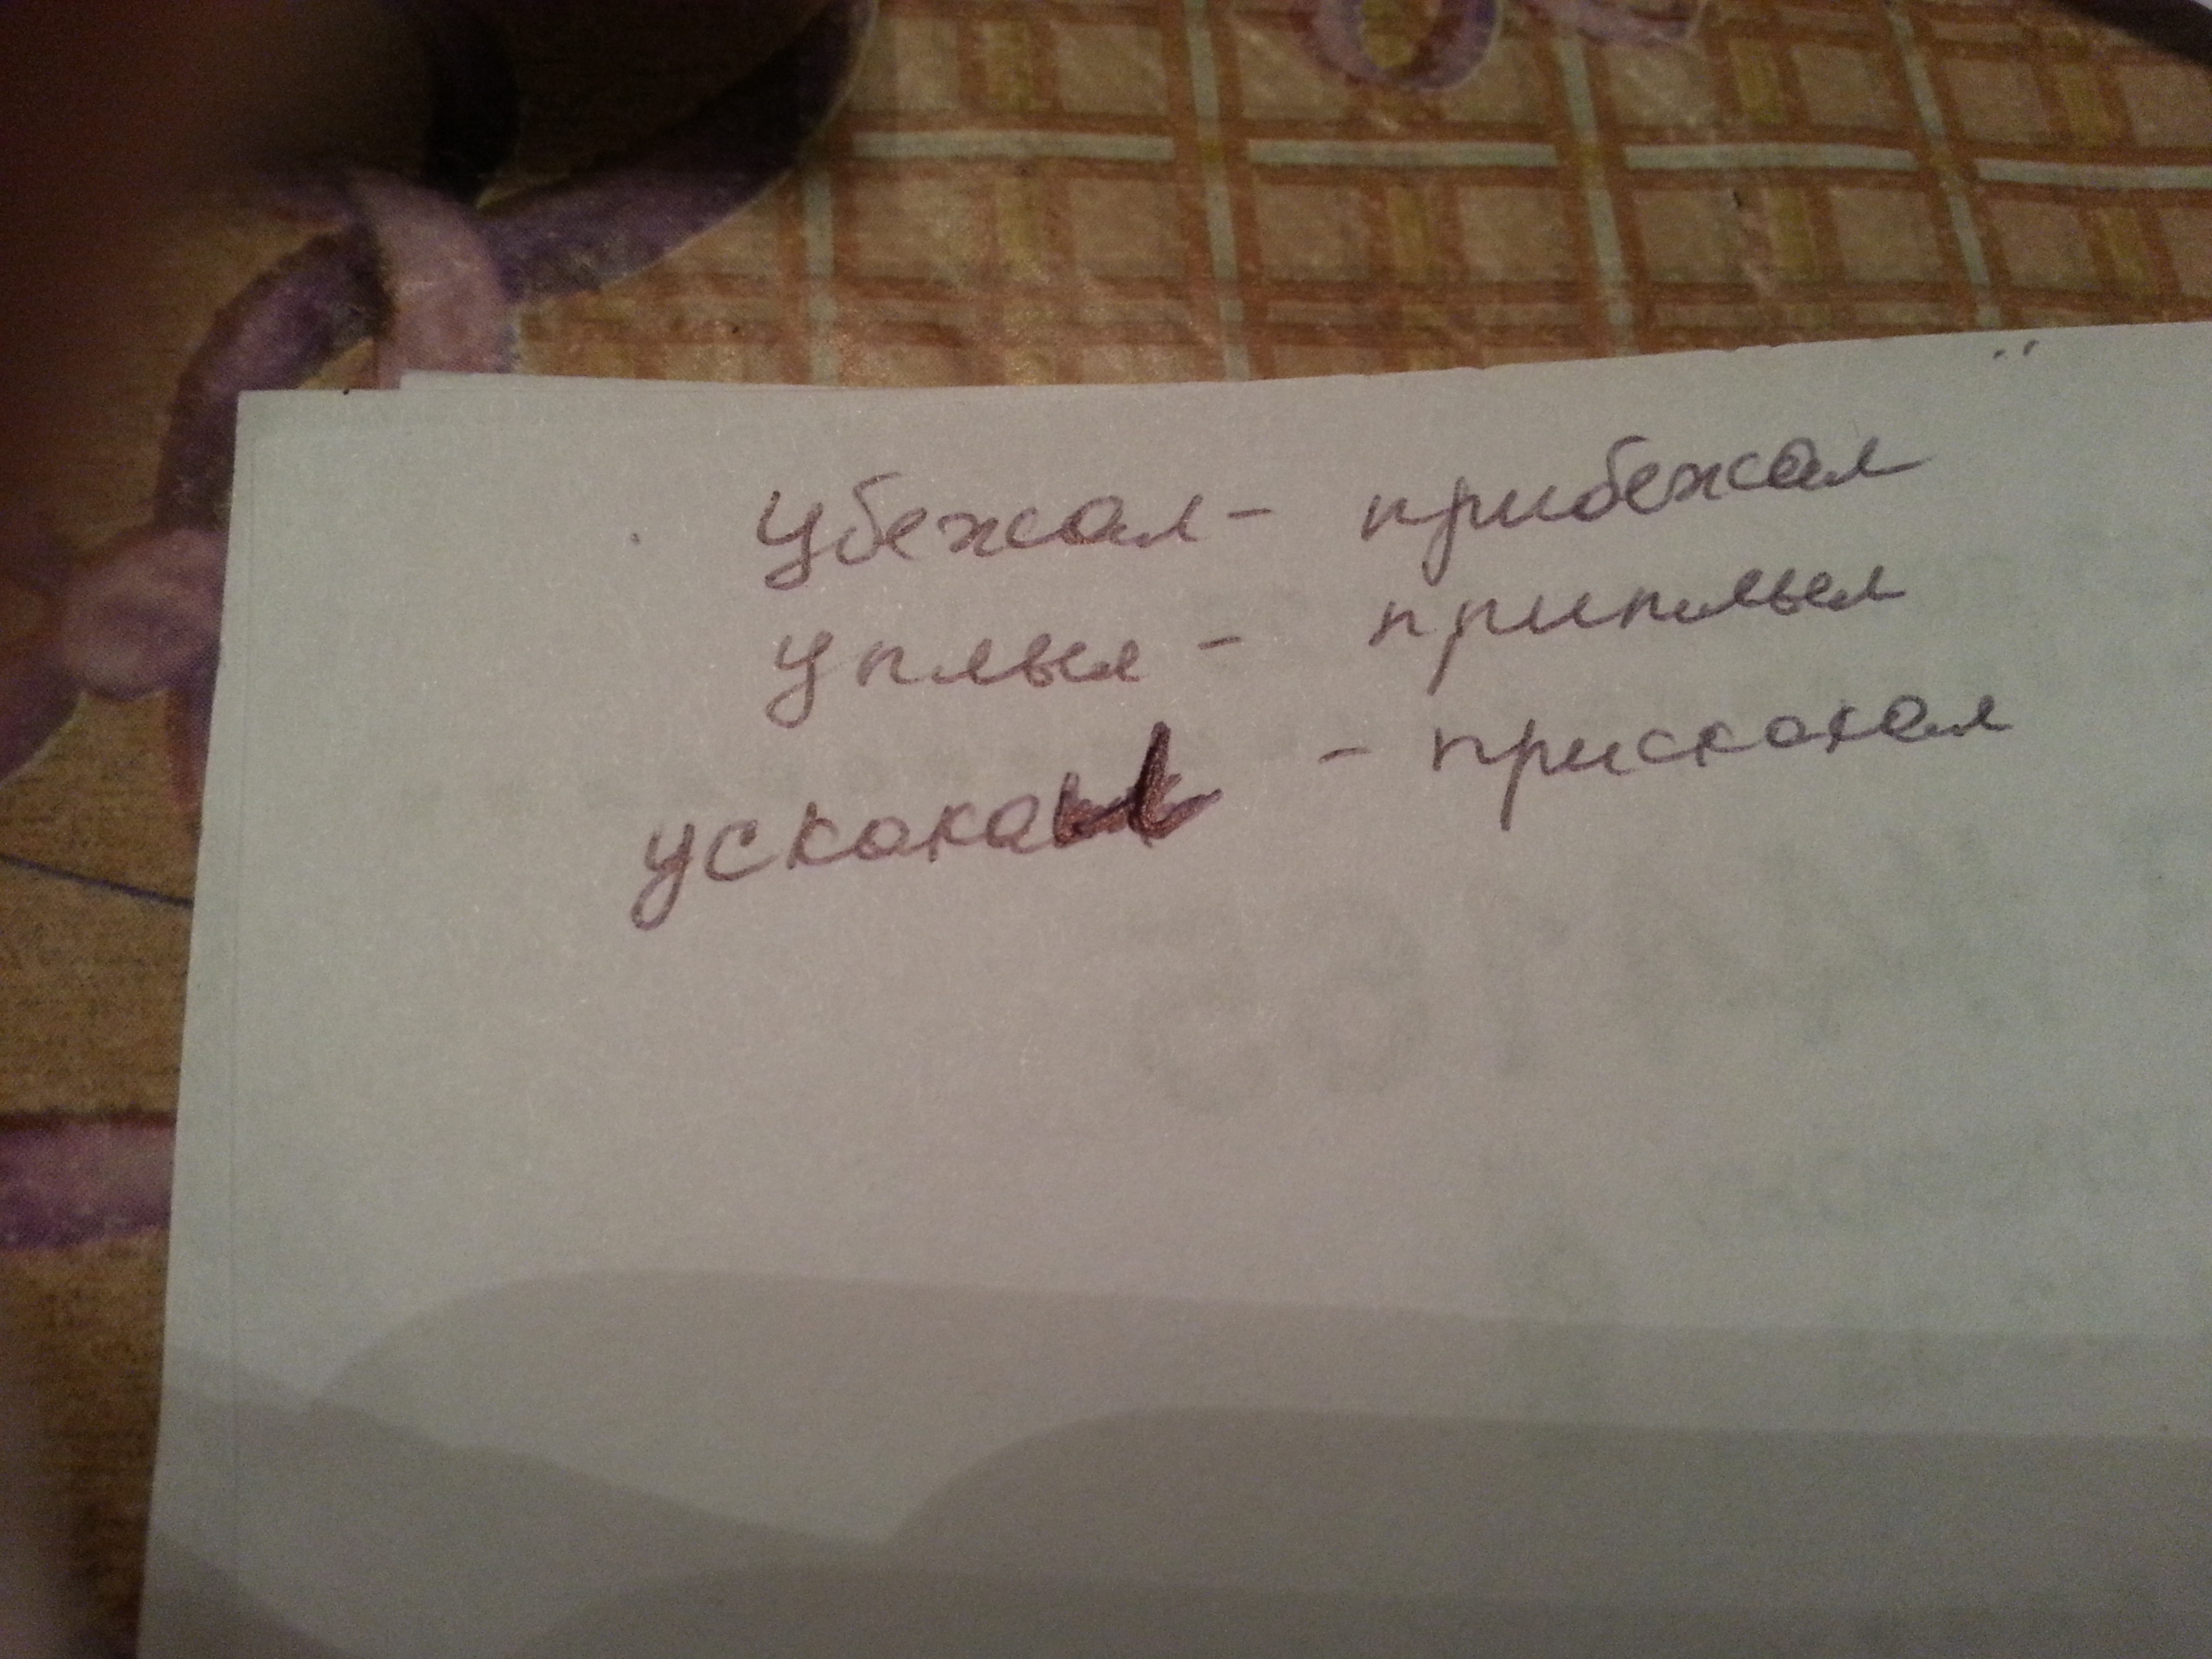 убежал - прибежал
уплыл - приплыл
ускокал - прискокал